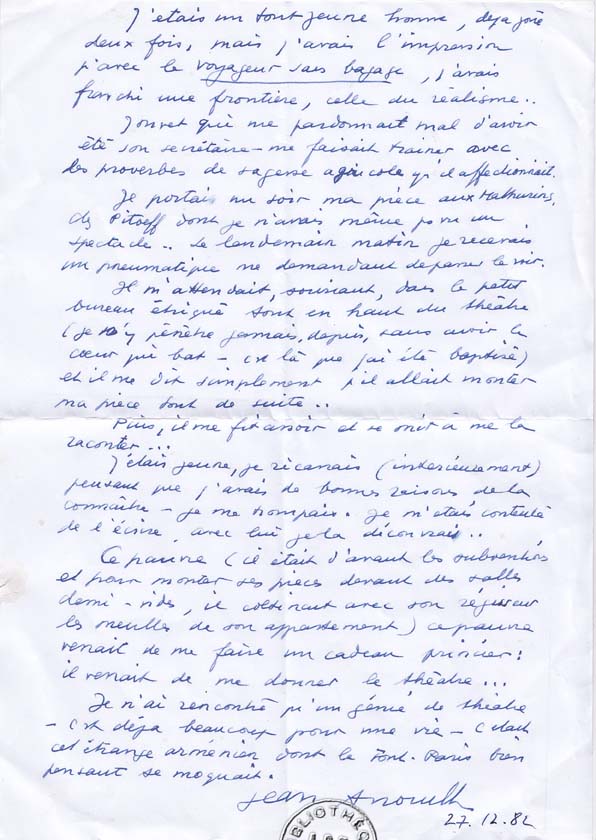 J'étais un tout jeune homme, déjà joué
deux fois, mais j'avais l'impression
qu'avec le voyageur sans bagage, j'avais
franchi une frontière, celle du réalisme..
Jouvet qui me pardonnait mal d'avoir
été son secrétaire - me faisait trainer avec
des proverbes de sagesse agricole qu'il affectionnait.
Je portais un soir ma pièce aux Mathurins,
chez Pitoëff dont je n'avais même pas vu un
spectacle.. le lendemain matin je recevais
un pneumatique me demandant de passer le voir.
Il m'attendait, souriant, dans le petit
bureau étriqué tout en haut du théâtre
(je n'y pénètre jamais, depuis, sans avoir le
cœur qui bat - c'est là que j'ai été baptisé)
et il me dit simplement qu'il allait monter
ma pièce tout de suite..
Puis, il me fit asseoir et se mit à me la
raconter...
J'étais jeune, je ricanais (intérieusement)
pensant que j'avais de bonnes raisons de la
connaître - je me trompais. Je m'étais contenté
de l'écrire, avec lui je la découvrais..
Ce pauvre (il était d'avant les subventions
et pour monter ses pièces devant des salles
demi-vides, il coltinait avec son régisseur
les meubles de son appartement) ce pauvre
venait de me faire un cadeau princier:
il venait de me donner le théâtre...
Je n'ai rencontré qu'un génie de théâtre
- c'est déjà beaucoup pour une vie - c'était
cet étrange arménien dont le Tout-Paris bien
pensant se moquait.
Jean Anouilh
27.12.82
BIBLIOTHÈ